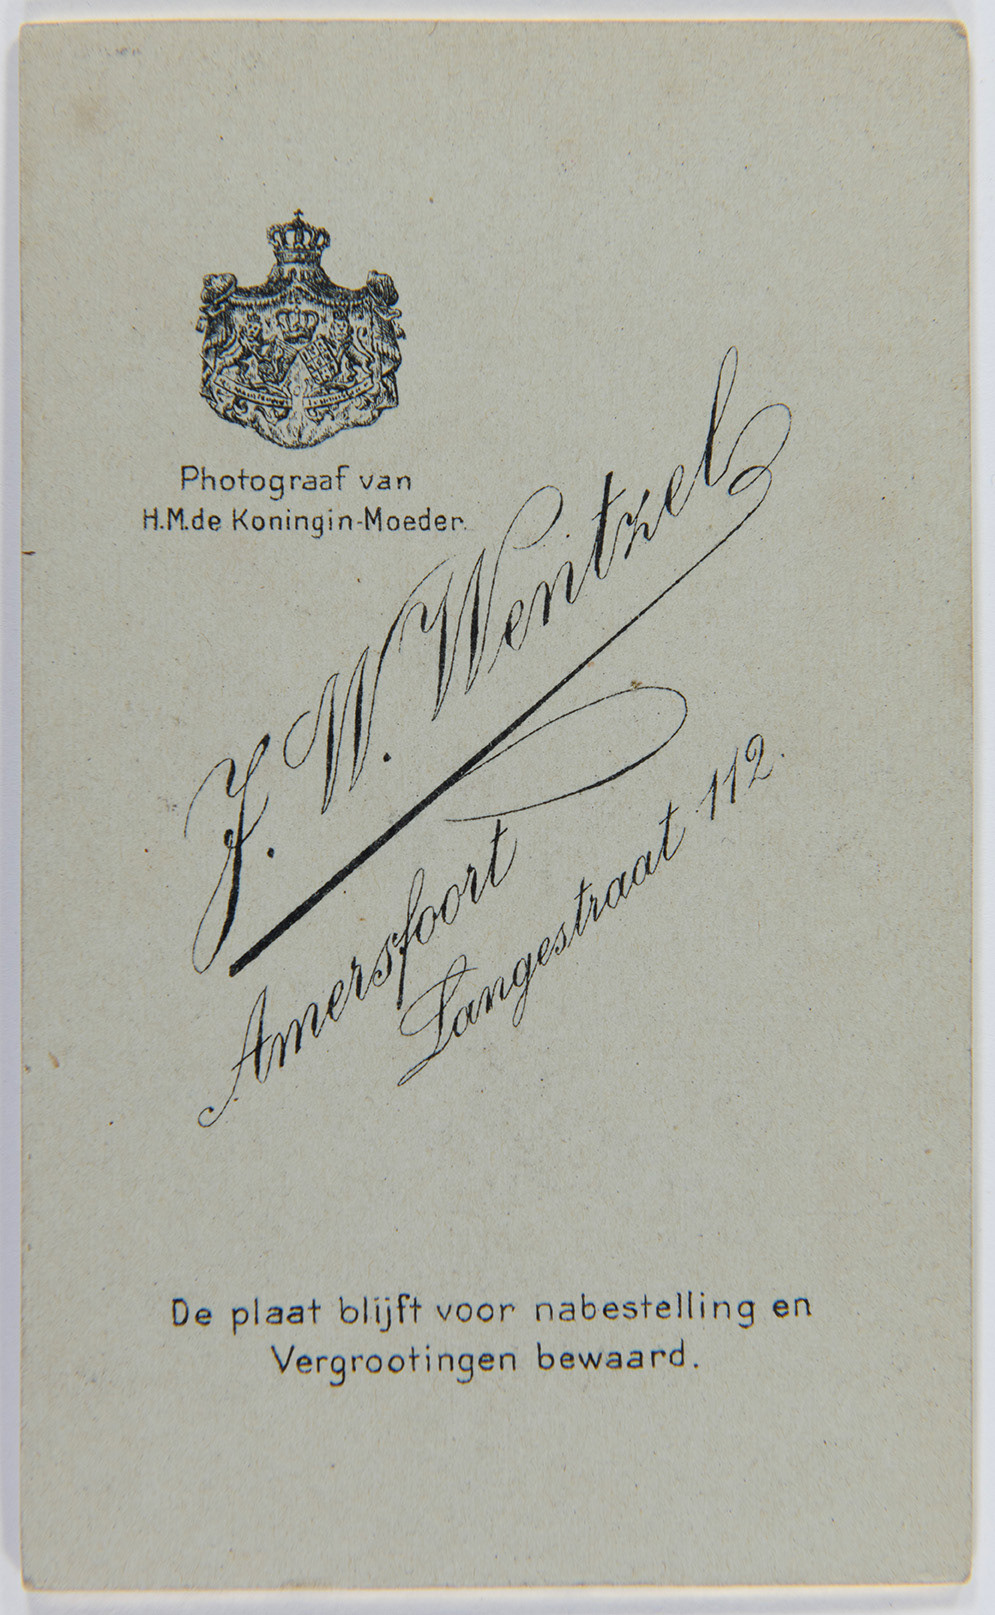 Photograaf van
H.M. de Koningin-Moeder.
J. W. Wentzel
Amersfoort
Langestraat 112.
De plaat blijft voor nabestelling en
Vergrootingen bewaard.